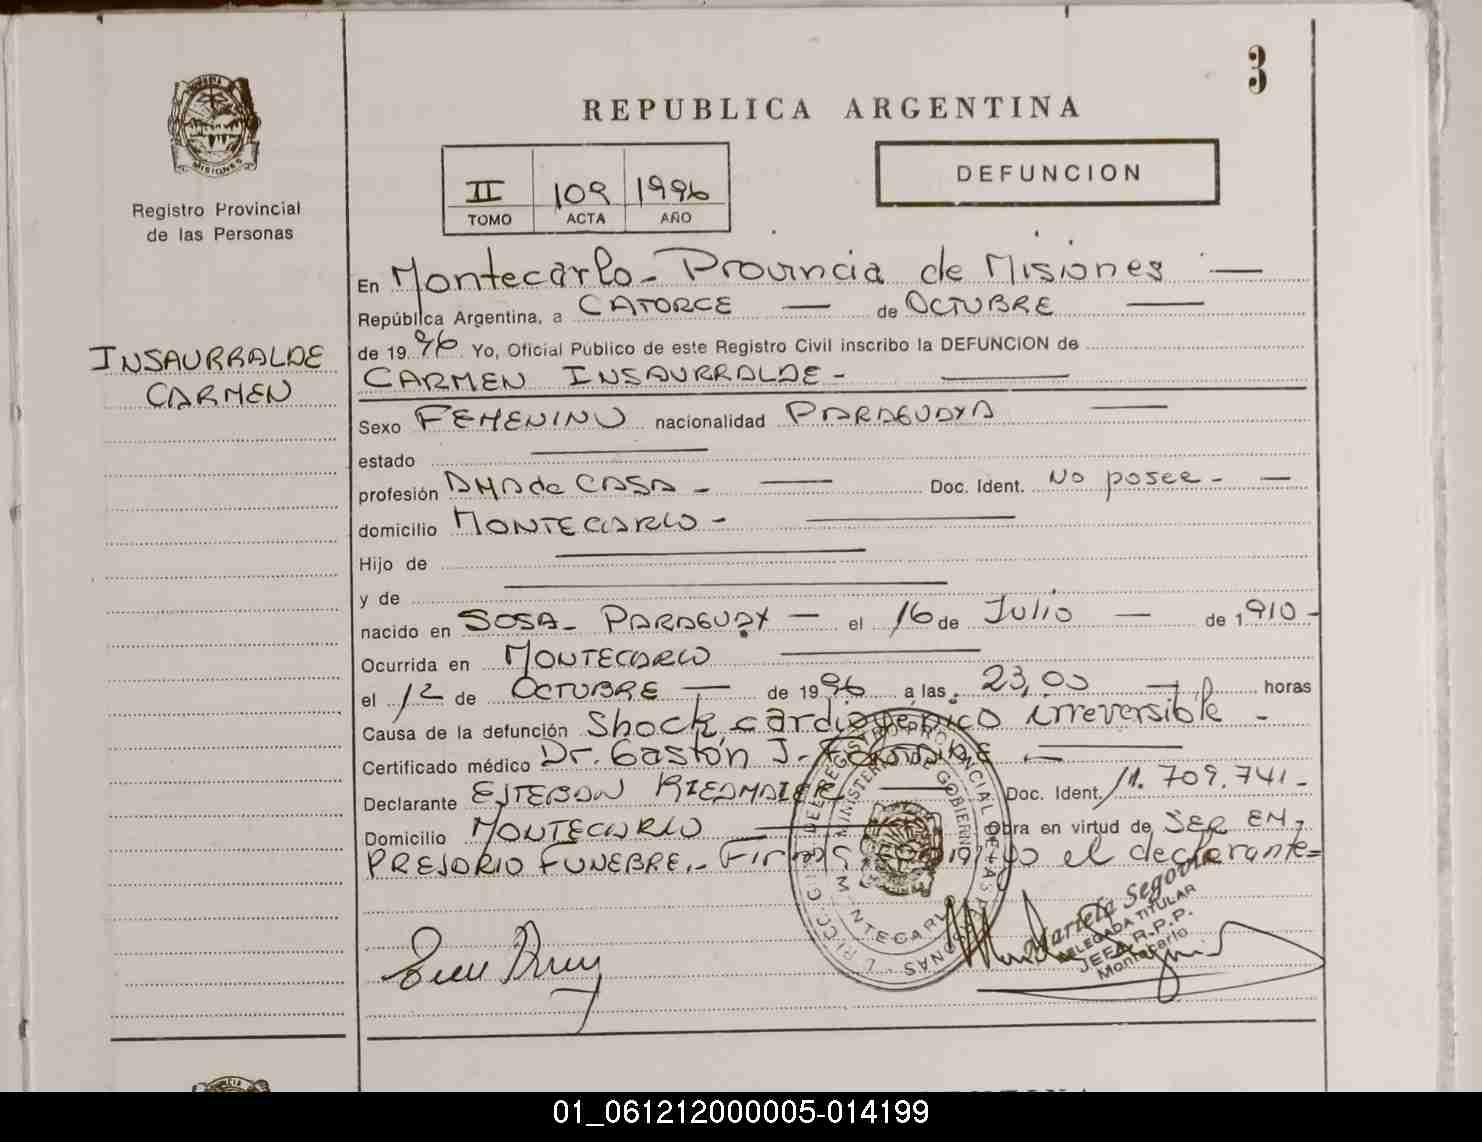 3
REPUBLICA ARGENTINA
MISIONES
Registro Provincial
de las Personas
II 109 1996
TOMO ACTA AÑO
DEFUNCION
INSAURRALDE
CARMEN
En Montecarlo - Provincia de Misiones
República Argentina, a CATORCE de OCTUBRE
de 1996 Yo, Oficial Público de este Registro Civil inscribo la DEFUNCION de
CARMEN INSAURRALDE -
Sexo FEMENINO nacionalidad PARAGUAYA
estado
profesión AMA de CASA - Doc. Ident. NO posee -
domicilio MONTECARLO -
Hijo de
y de
nacido en SOSA - PARAGUAY - el 16 de Julio de 1910 -
Ocurrida en MONTECARLO
el 12 de OCTUBRE de 1996 a las 23,00 horas
Causa de la defunción Shock cardiogenico irreversible -
Certificado médico Dr. Gastón J.
Declarante ESTEBAN RIEDMAIER Doc. Ident. 11.709.741 -
Domicilio MONTECARLO Obra en virtud de SER EM-
PRESARIO FUNEBRE.- Firma conmigo el declarante=
REGISTRO PROVINCIAL DE LAS PERSONAS
MINISTERIO DE GOBIERNO
MONTECARLO
Mariela Segovia
DELEGADA TITULAR
JEFA R.P.P.
Montecarlo
01_061212000005-014199